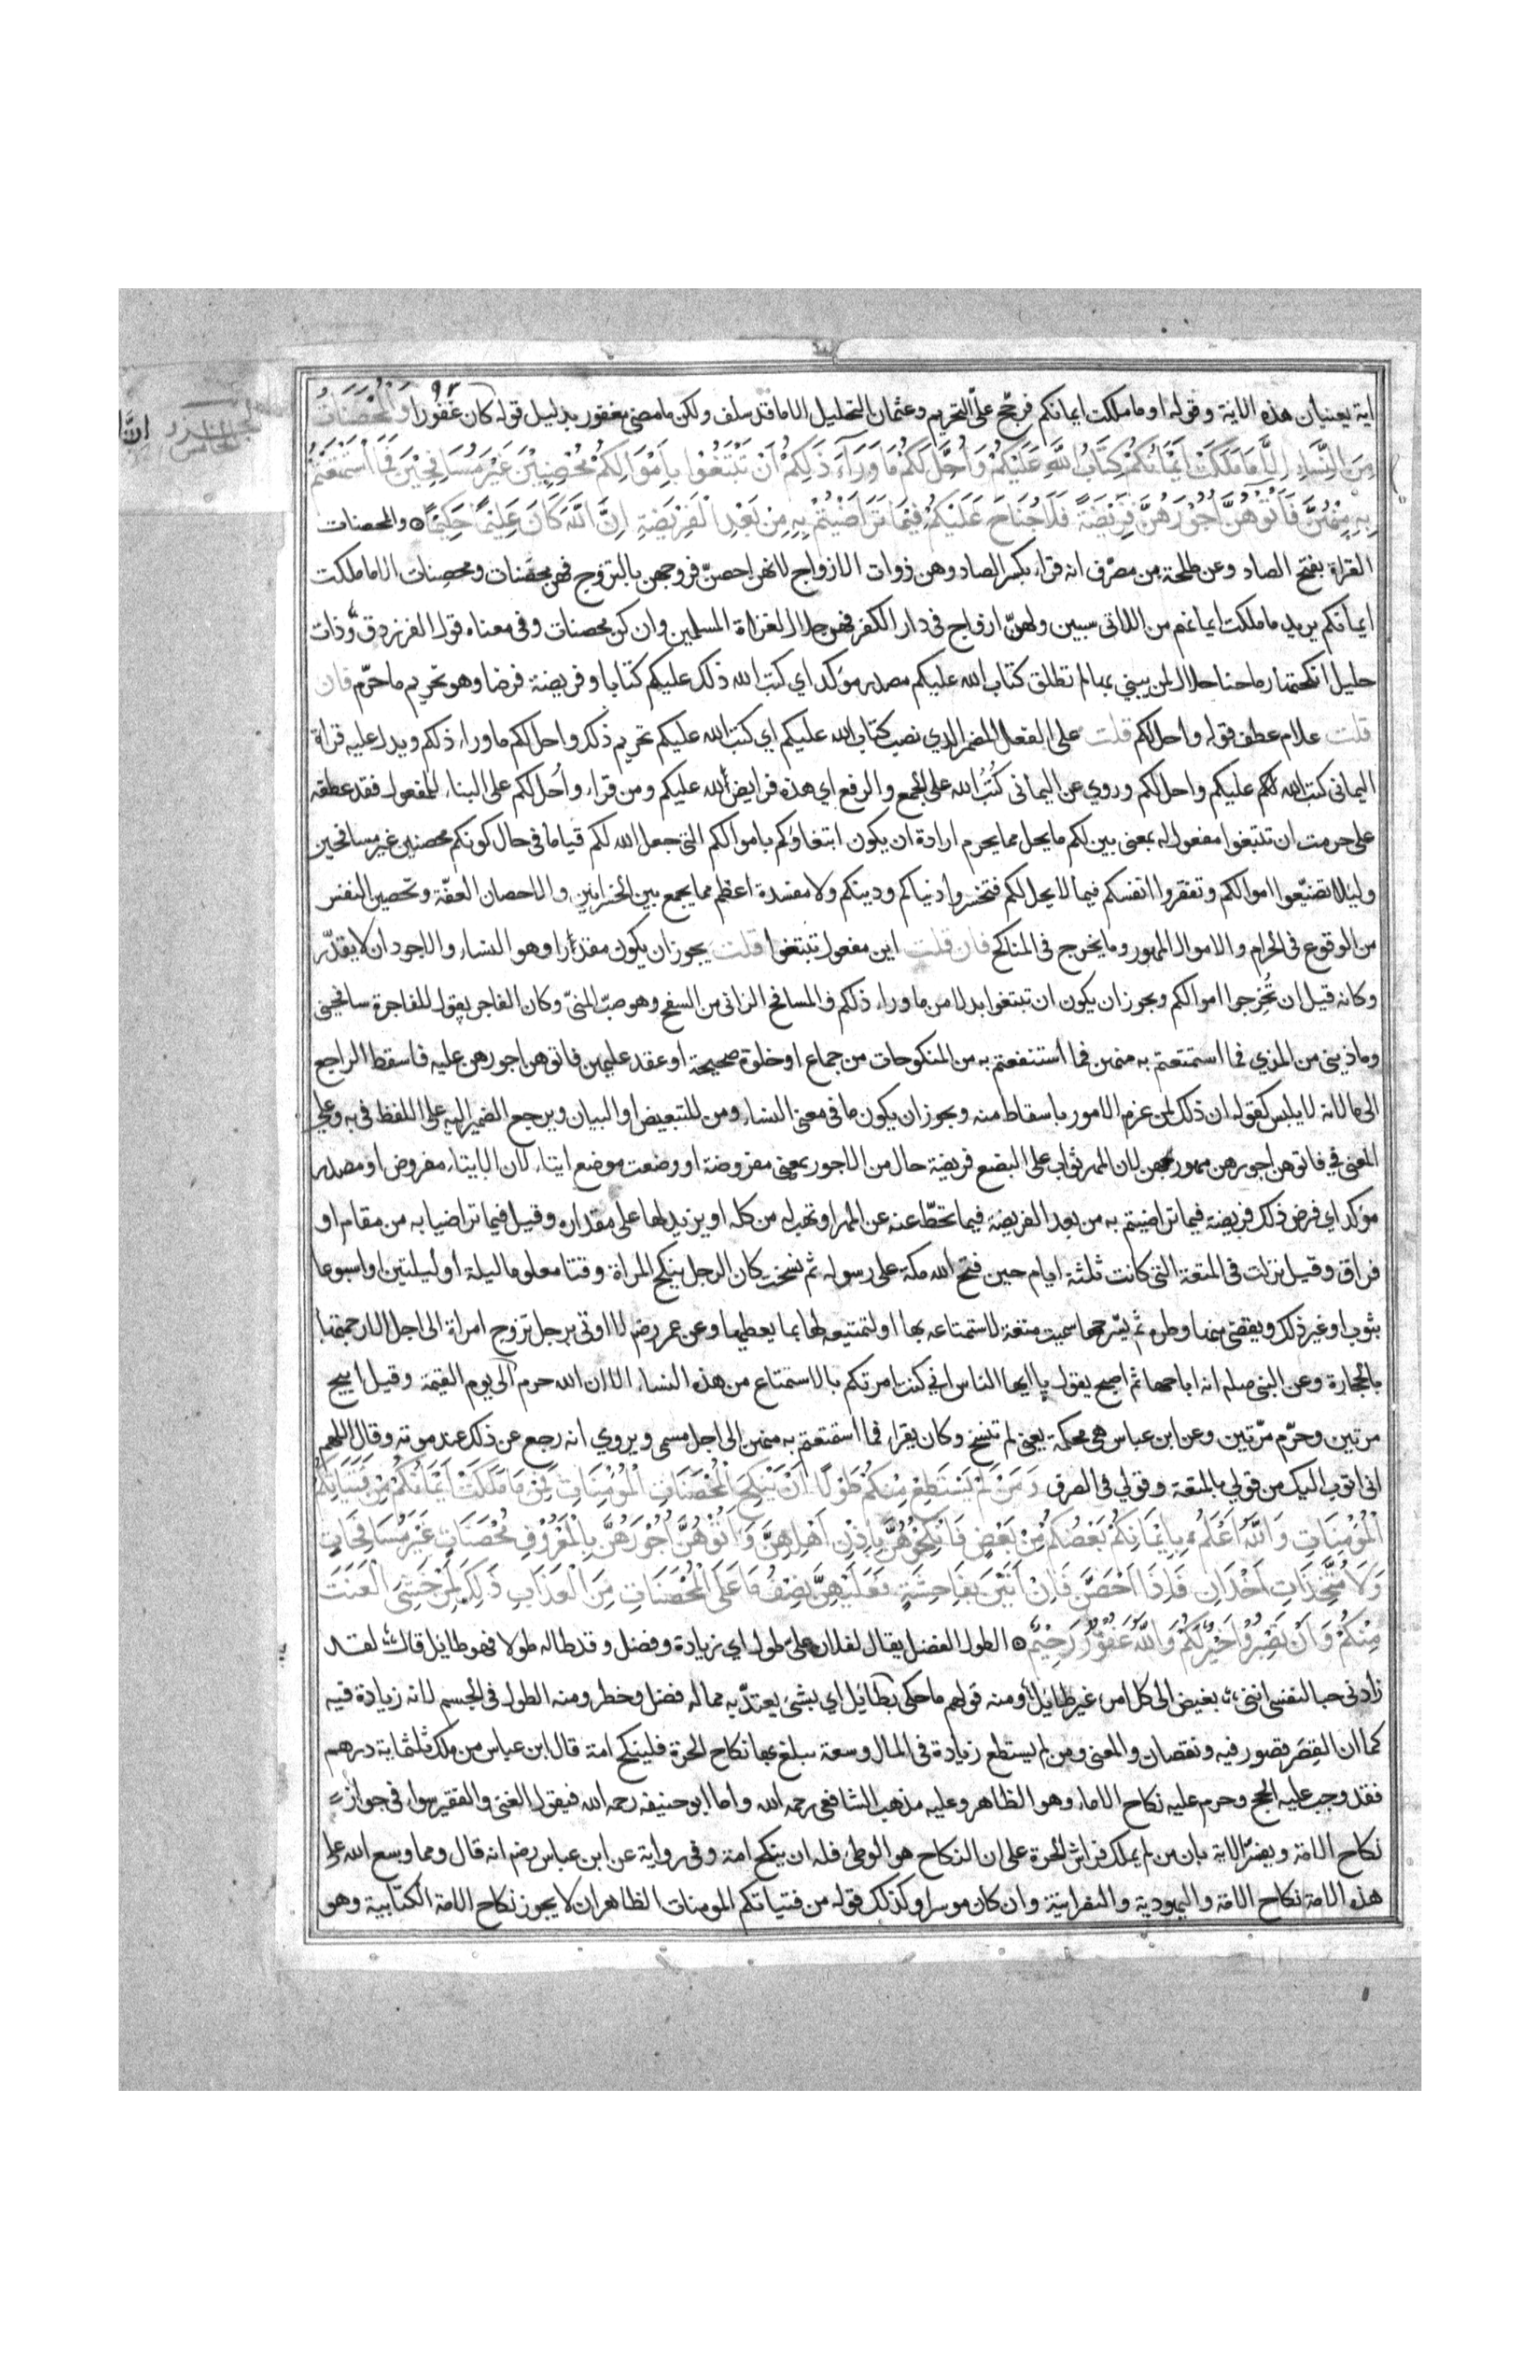 اية يعنيان هذه الاية وقوله او ما ملكت ايمانكم فرجّح علىّ التحريم وعثمان التحليل الا ما قد سلف ولكن ما مضى مغفور بدليل قوله كان غفورا وَالْمُحْصَنَاتُ
مِنَ النِّسَاءِ اِلَّا مَا مَلَكَتْ اَيْمَانُكُمْ كِتَابَ اللّٰهِ عَلَيْكُمْ وَاُحِلَّ لَكُمْ مَا وَرَآءَ ذٰلِكُمْ اَنْ تَبْتَغُوا بِاَمْوَالِكُمْ مُحْصِنِيْنَ غَيْرَ مُسَافِحِيْنَ فَمَا اسْتَمْتَعْتُمْ
بِهِ مِنْهُنَّ فَاٰتُوْهُنَّ اُجُوْرَهُنَّ فَرِيْضَةً وَلَا جُنَاحَ عَلَيْكُمْ فِيْمَا تَرَاضَيْتُمْ بِهِ مِنْ بَعْدِ الْفَرِيْضَةِ اِنَّ اللّٰهَ كَانَ عَلِيْمًا حَكِيْمًا والمحصنات
القراة بفتح الصاد وعن طلحة بن مصرّف انه قراء بكسر الصاد وهن ذوات الازواج لانهن احصنّ فروجهن بالتزوج فهن محصَنات ومحصِنات الا ما ملكت
ايمانكم يريد ما ملكت ايمانهم من اللاتى سبين ولهنّ ازواج فى دار الكفر فهن حلال لغزاة المسلمين وان كن محصنات وفى معناه قول الفرزدق وذات
حليل انكحتها رماحنا حلال لمن يبنى بها لم تطلق كتاب الله عليكم مصدر مؤكد اي كتب الله ذلك عليكم كتابا وفريضة فرضا وهو تحريم ما حرّم فان
قلت علام عطف قوله واحل لكم قلت على الفعل المضمر الذي نصب كتاب الله عليكم اي كتب الله عليكم تحريم ذلك واحل لكم ما وراء ذلكم ويدل عليه قراة
اليمانى كتب الله عليكم واحل لكم وروي عن اليمانى كُتُبُ الله على الجمع والرفع اي هذه فرايض الله عليكم ومن قراء واُحل لكم على البناء للمفعول فقد عطفه
على حرمت ان تبتغوا مفعول له بمعنى بين لكم ما يحل مما يحرم ارادة ان يكون ابتغاؤكم باموالكم التى جعل الله لكم قياما فى حال كونكم محصنين غير مسافحين
وليلا تضيّعوا اموالكم وتفقروا انفسكم فيما لا يحل لكم فتخسروا دنياكم ودينكم ولا مفسدة اعظم مما يجمع بين الخسرانين والاحصان العفّة وتحصين النفس
من الوقوع فى الحرام والاموال المهور وما يخرج فى المناكح فان قلت اين مفعول تبتغوا قلت يجوز ان يكون مقدّرا وهو النساء والاجود ان لا يقدّر
وكانه قيل ان تُخرجوا اموالكم ويجوز ان يكون ان تبتغوا بدلا من ما وراء ذلكم والمسافح الزانى من السفح وهو صبّ المنىّ وكان الفاجر يقول للفاجرة سافحينى
وماذينى من المذي فما استمتعتم به منهن فما استنفعتم به من المنكوحات من جماع او خلوة صحيحة او عقد عليهن فاتوهن اجورهن عليه فاسقط الراجع
الى ما لانه لا يلبس كقوله ان ذلك لمن عزم الامور باسقاط منه ويجوز ان يكون ما فى معنى النساء ومن للتبعيض او البيان ويرجع الضمير اليه على اللفظ فى به وعلى
المعنى فى فاتوهن اجورهن مهورهن لان المهر ثواب على البضع فريضة حال من الاجور بمعنى مفروضة او وضعت موضع ايتاء لان الايتاء مفروض او مصدر
مؤكد اي فرض ذلك فريضة فيما تراضيتم به من بعد الفريضة فيما تحطّ عنه عن المهر او تهب له من كله او يزيد لها على مقداره وقيل فيما تراضيا به من مقام او
فراق وقيل نزلت فى المتعة التى كانت ثلثة ايام حين فتح الله مكة على رسوله ثم نسخت كان الرجل ينكح المراة وقتا معلوما ليلة او ليلتين او اسبوعا
بثوب او غير ذلك ويقضى منها وطره ثم يسّرحها سميت متعة لاستمتاعه بها او لتمتيعه لها بما يعطيها وعن عمر رضى لا اوتى برجل تزوج امراة الى اجل الا رجمتهما
بالحجارة وعن النبى صلم انه اباحها ثم اصبح يقول يا ايها الناس انى كنت امرتكم بالاستمتاع من هذه النساء الا ان الله حرم الى يوم القيمة وقيل ابيح
مرتين وحرّم مرّتين وعن ابن عباس هى محكمة يعنى لم تنسخ وكان يقراء فما استمتعتم به منهن الى اجل مسمى ويروي انه رجع عن ذلك عند موته وقال اللهم
انى اتوب اليك من قولي بالمتعة وقولي فى الصرف وَمَنْ لَمْ يَسْتَطِعْ مِنْكُمْ طَوْلًا اَنْ يَنْكِحَ الْمُحْصَنَاتِ الْمُؤْمِنَاتِ فَمِنْ مَا مَلَكَتْ اَيْمَانُكُمْ مِنْ فَتَيَاتِكُمُ
الْمُؤْمِنَاتِ وَاللّٰهُ اَعْلَمُ بِاِيْمَانِكُمْ بَعْضُكُمْ مِنْ بَعْضٍ فَانْكِحُوْهُنَّ بِاِذْنِ اَهْلِهِنَّ وَاٰتُوْهُنَّ اُجُوْرَهُنَّ بِالْمَعْرُوْفِ مُحْصَنَاتٍ غَيْرَ مُسَافِحَاتٍ
وَلَا مُتَّخِذَاتِ اَخْدَانٍ فَاِذَا اُحْصِنَّ فَاِنْ اَتَيْنَ بِفَاحِشَةٍ فَعَلَيْهِنَّ نِصْفُ مَا عَلَى الْمُحْصَنَاتِ مِنَ الْعَذَابِ ذٰلِكَ لِمَنْ خَشِىَ الْعَنَتَ
مِنْكُمْ وَاَنْ تَصْبِرُوْا خَيْرٌ لَكُمْ وَاللّٰهُ غَفُوْرٌ رَحِيْمٌ الطول الفضل يقال لفلان على طول اي زيادة وفضل وقد طاله طولا فهو طايل قال لقد
زادنى حبا لنفسى اننى بغيض الى كل امرء غير طايل ومنه قولهم ما حلى بطايل اي بشئ يعتدّ به مما له فضل وخطر ومنه الطول فى الجسم لانه زيادة فيه
كما ان القِصَر قصور فيه ونقصان والمعنى ومن لم يستطع زيادة فى المال وسعة يبلغ بها نكاح الحرة فلينكح امة قال ابن عباس من ملك ثلثماية درهم
فقد وجب عليه الحج وحرم عليه نكاح الاماء وهو الظاهر وعليه مذهب الشافعى رحمه الله واما ابو حنيفه رحمه الله فيقول الغنى والفقير سواء فى جواز
نكاح الامة ويفسّر الاية بان من لم يملك فراش الحرة على ان النكاح هو الوطئ فله ان ينكح امة وفى رواية عن ابن عباس رضى انه قال ومما وسع الله على
هذه الامة نكاح الامة واليهودية والنصرانية وان كان موسرا وكذلك قوله من فتياتكم المومنات الظاهر ان لا يجوز نكاح الامة الكتابية وهو